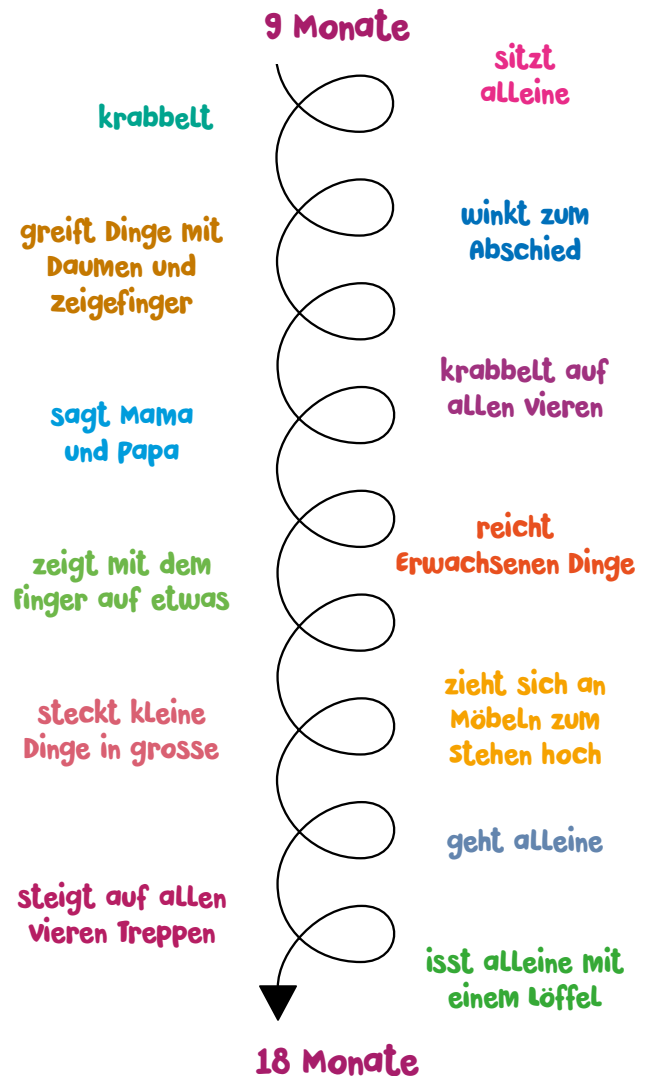 9 Monate
sitzt
alleine
krabbelt
winkt zum
Abschied
greift Dinge mit
Daumen und
zeigefinger
krabbelt auf
allen vieren
sagt Mama
und Papa
reicht
Erwachsenen Dinge
zeigt mit dem
Finger auf etwas
zieht sich an
Möbeln zum
stehen hoch
steckt kleine
Dinge in grosse
geht alleine
steigt auf allen
vieren Treppen
isst alleine mit
einem Löffel
18 Monate